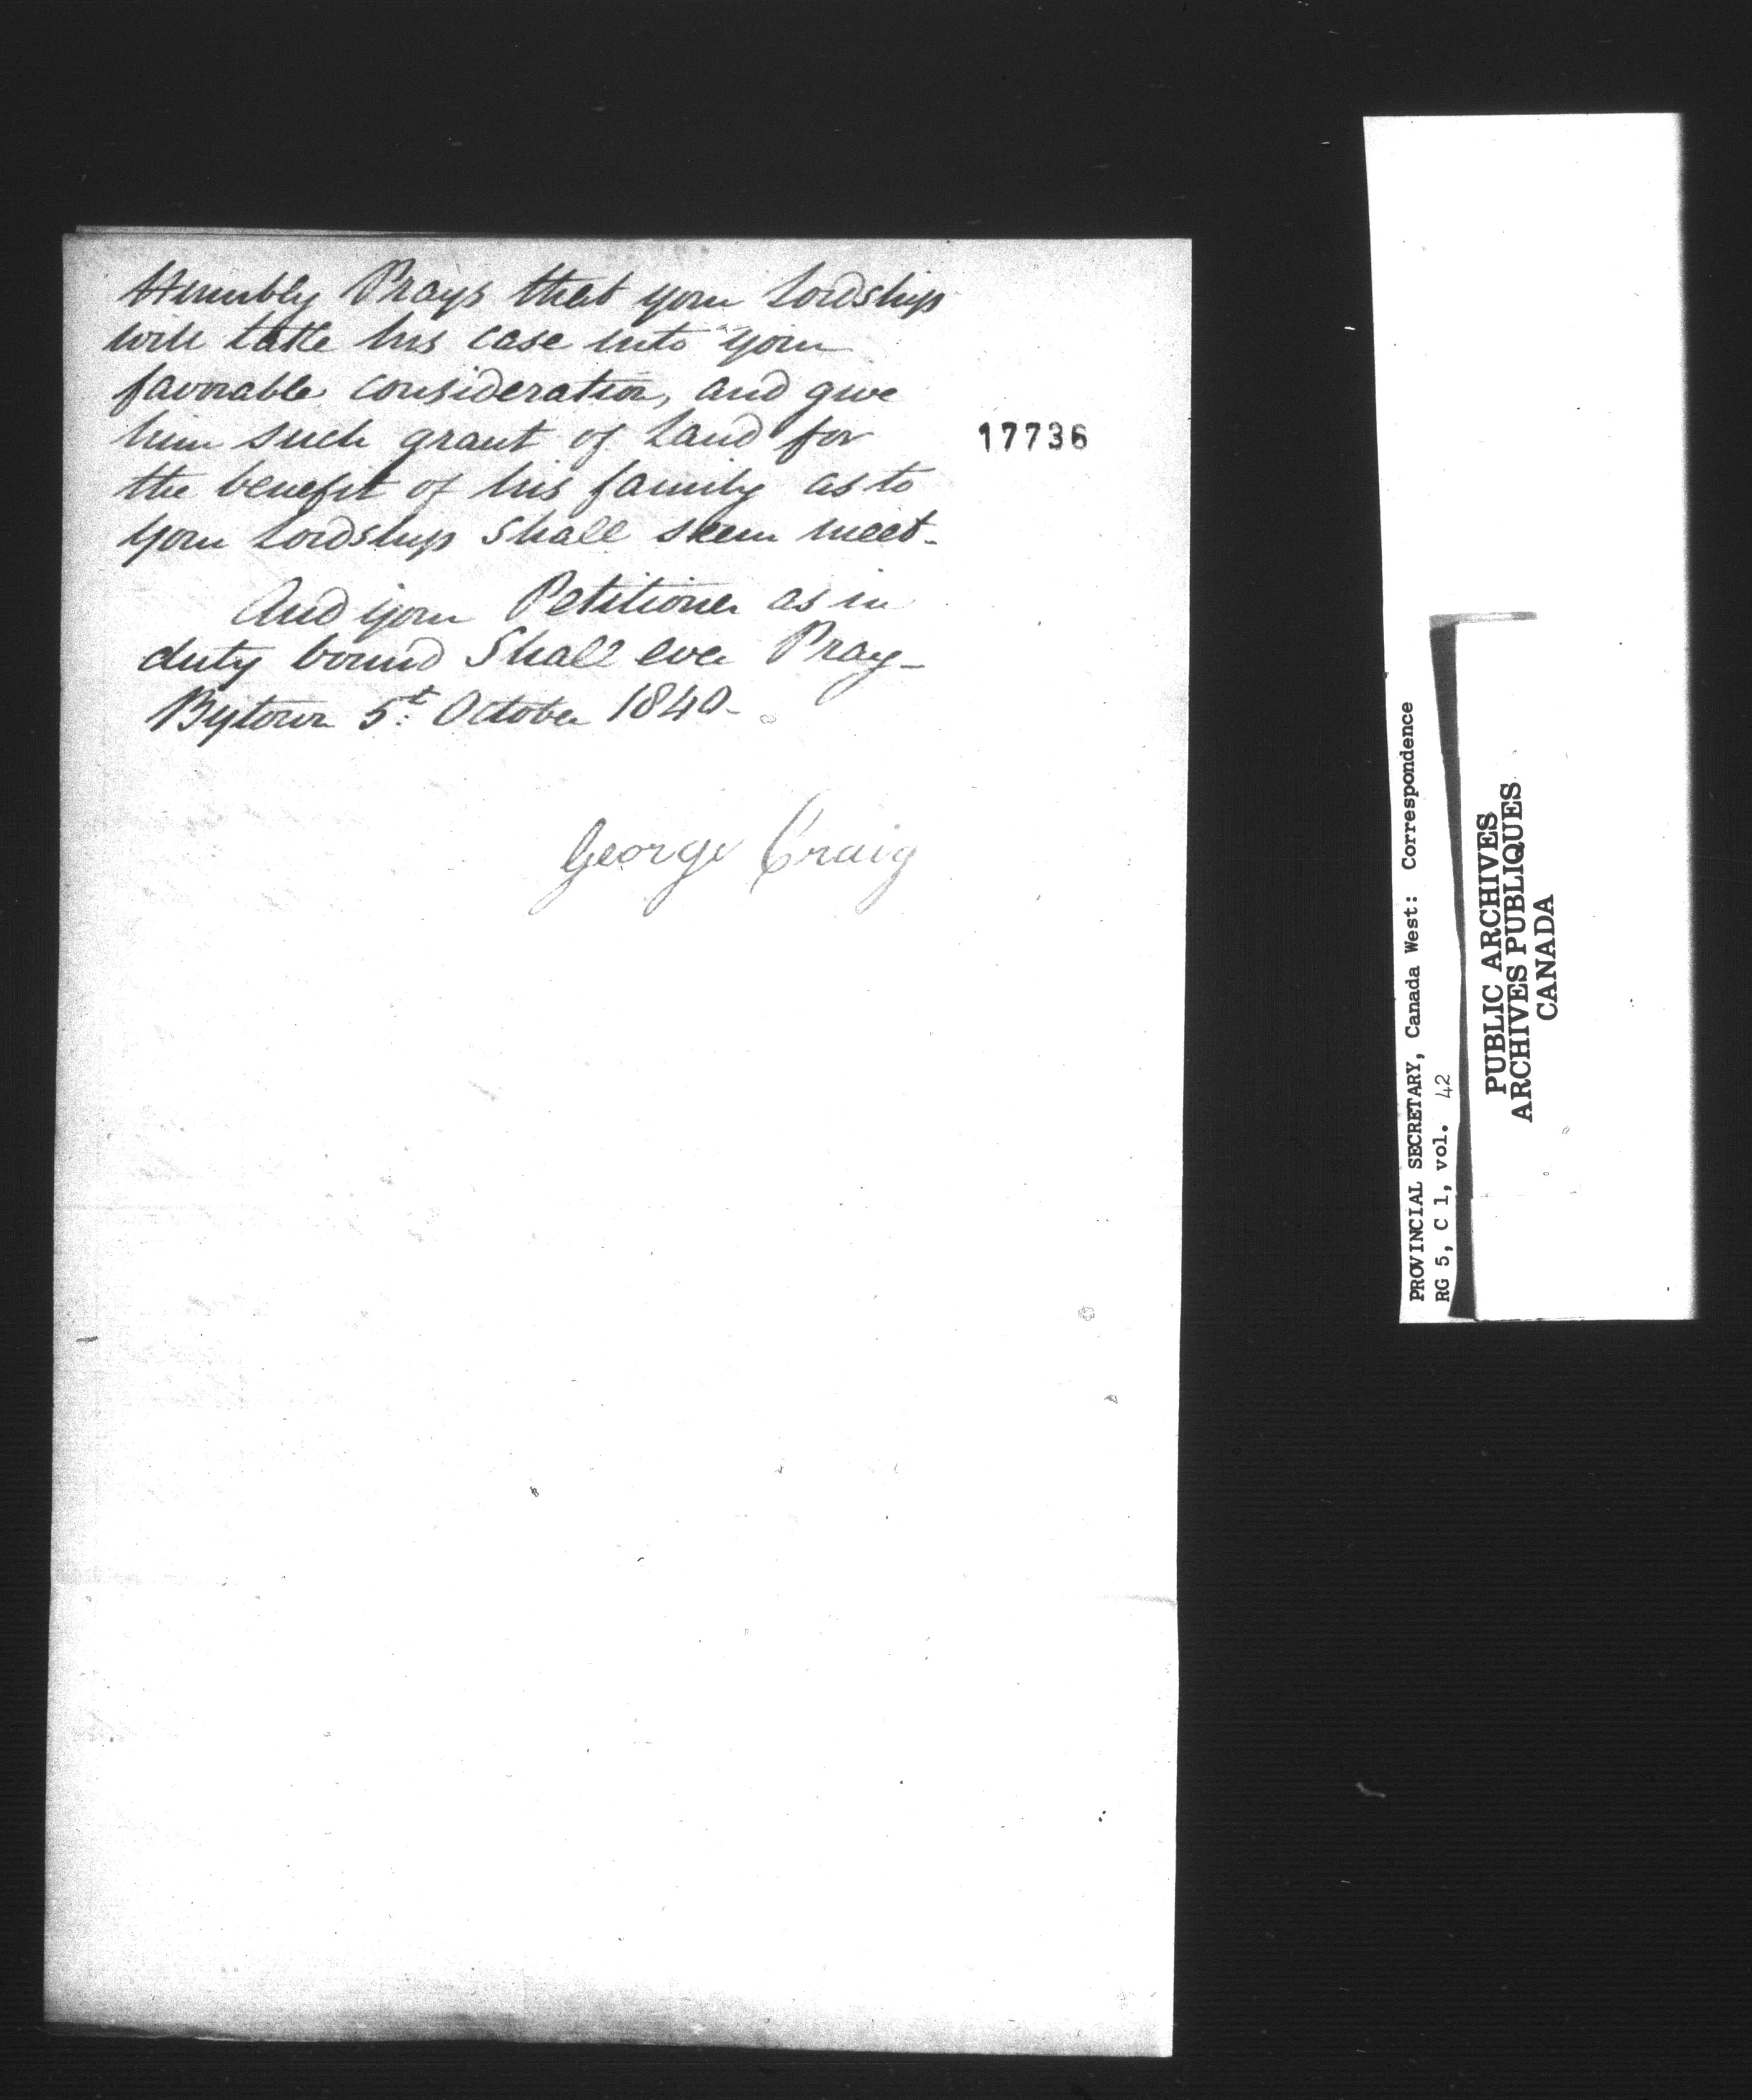 Humbly Prays that your Lordship
will take his case into your
favorable consideration, and give
him such grant of Land for
the benefit of his family as to
your Lordship Shall seem meet-
And your Petitioner as in
duty bound Shall ever Pray-
Bytown 5t: October 1840-
George Craig
17736
PROVINCIAL SECRETARY, Canada West: Correspondence
RG 5, C 1, vol. 42
PUBLIC ARCHIVES
ARCHIVES PUBLIQUES
CANADA